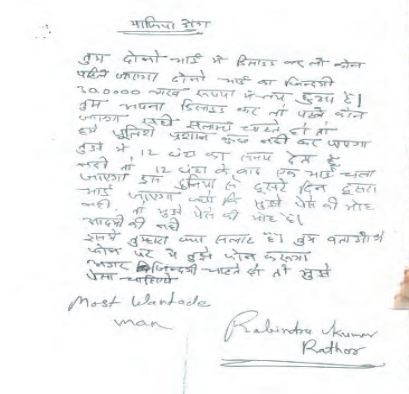 माफिया डोन
तुम दोनो भाई मे डिसाइड कर लो कोन
पहिले जाएगा दोनो भाई का जिन्दगी
30,0000 लाख रूपया मे तय हुआ है।
तुम अपना डिसाइड कर लो पहले कोन
जाएगा सलामत चाहते हो तो
हमे पुलिश प्रशाशन कुछ नही कर पाएगा
तुझे मे 12 घंटा का समय देता हूँ
नही तो 12 घंटा के बाद एक भाई चला
जाएगा इस दुनिया से दूसरे दिन दूसरा
भाई जाएगा क्यो कि मुझे पैसे की मोह
नही तो मुझे पैसे की मोह है।
आदमी की नही
इसमे तुम्हारा क्या सलाह है। तुम बताओगे
फोन पर मे तुझे फोन करूंगा
अगर जिन्दगी चाहते हो तो मुझे
पैसा चाहिये
Most Wantede
man
Rabindra Kumar
Rathor